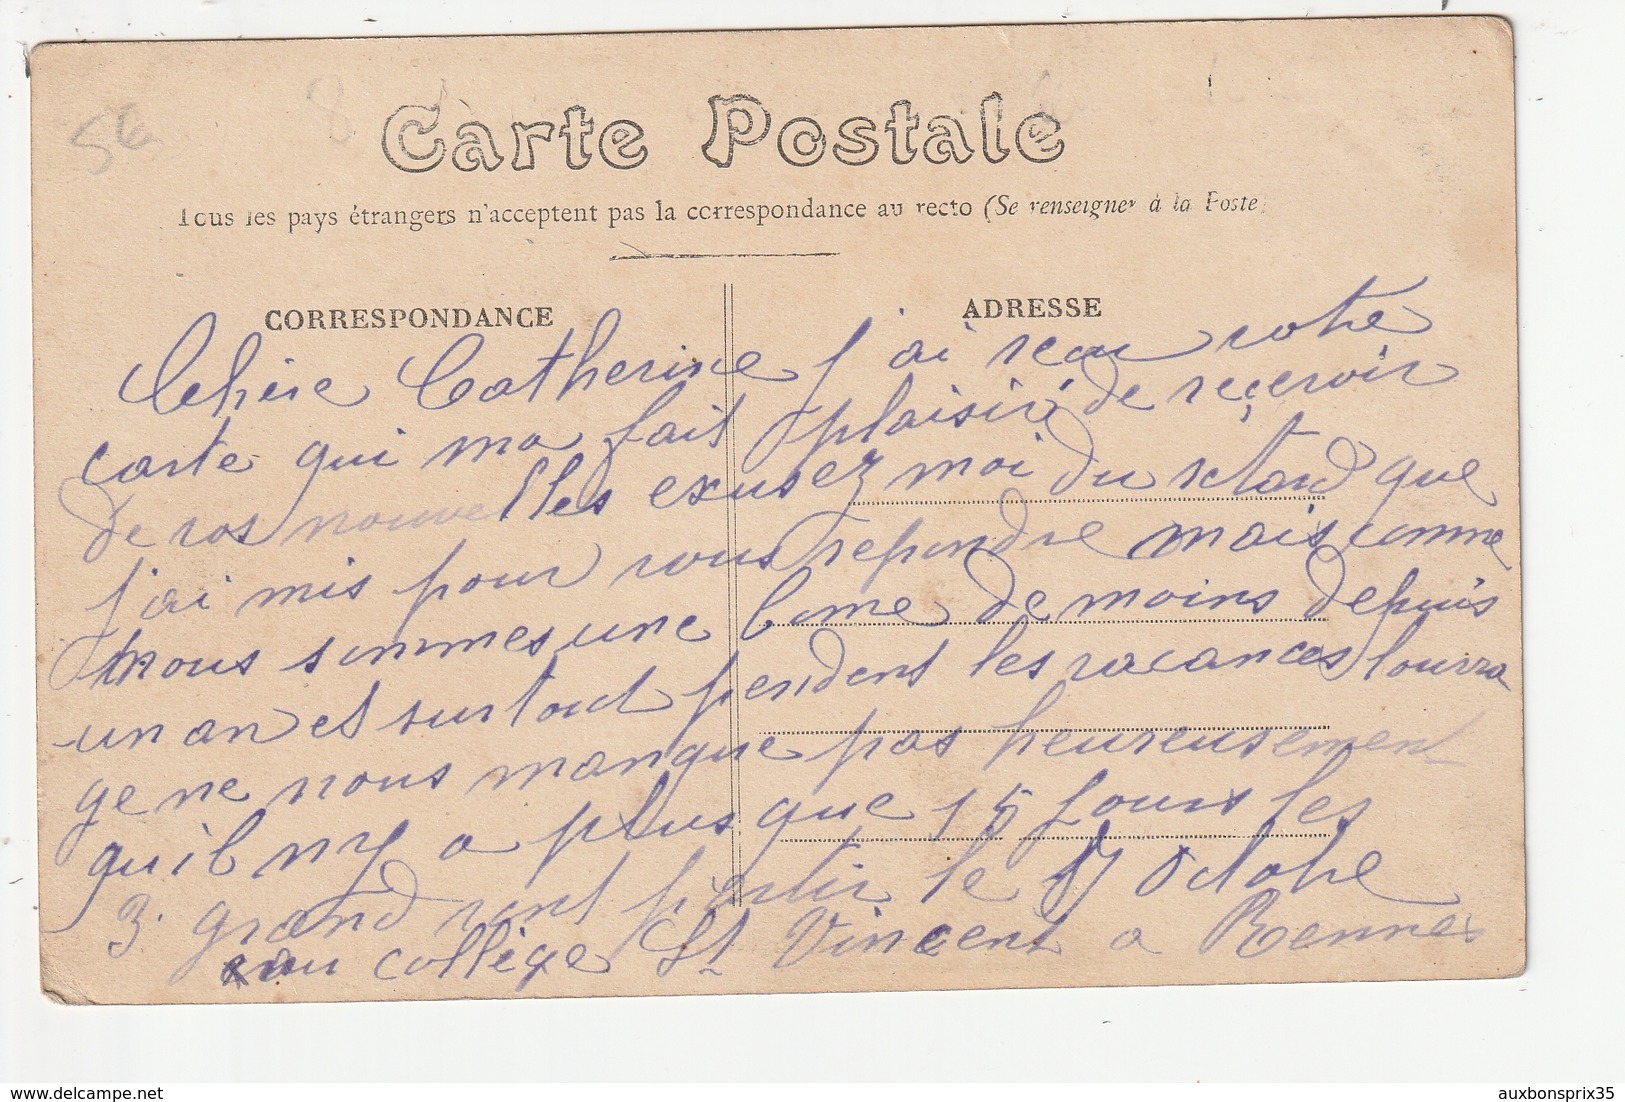 5€
Carte Postale
Tous les pays étrangers n'acceptent pas la correspondance au recto (Se renseigner à la Poste)
CORRESPONDANCE
ADRESSE
Chère Catherine j'ai recu votre
carte qui ma fait plaisir de reçevoir
de vos nouvelles exusez moi du retard que
j'ai mis pour vous repondre mais comme
nous sommes une bonne de moins depuis
un an et surtout pendent les vacances louvra
ge ne nous manque pas heureusement
quil ny a plus que 15 Jours les
3 grand vont partir le 17 Octobre
au collège St Vincent a Rennes
auxbonsprix35